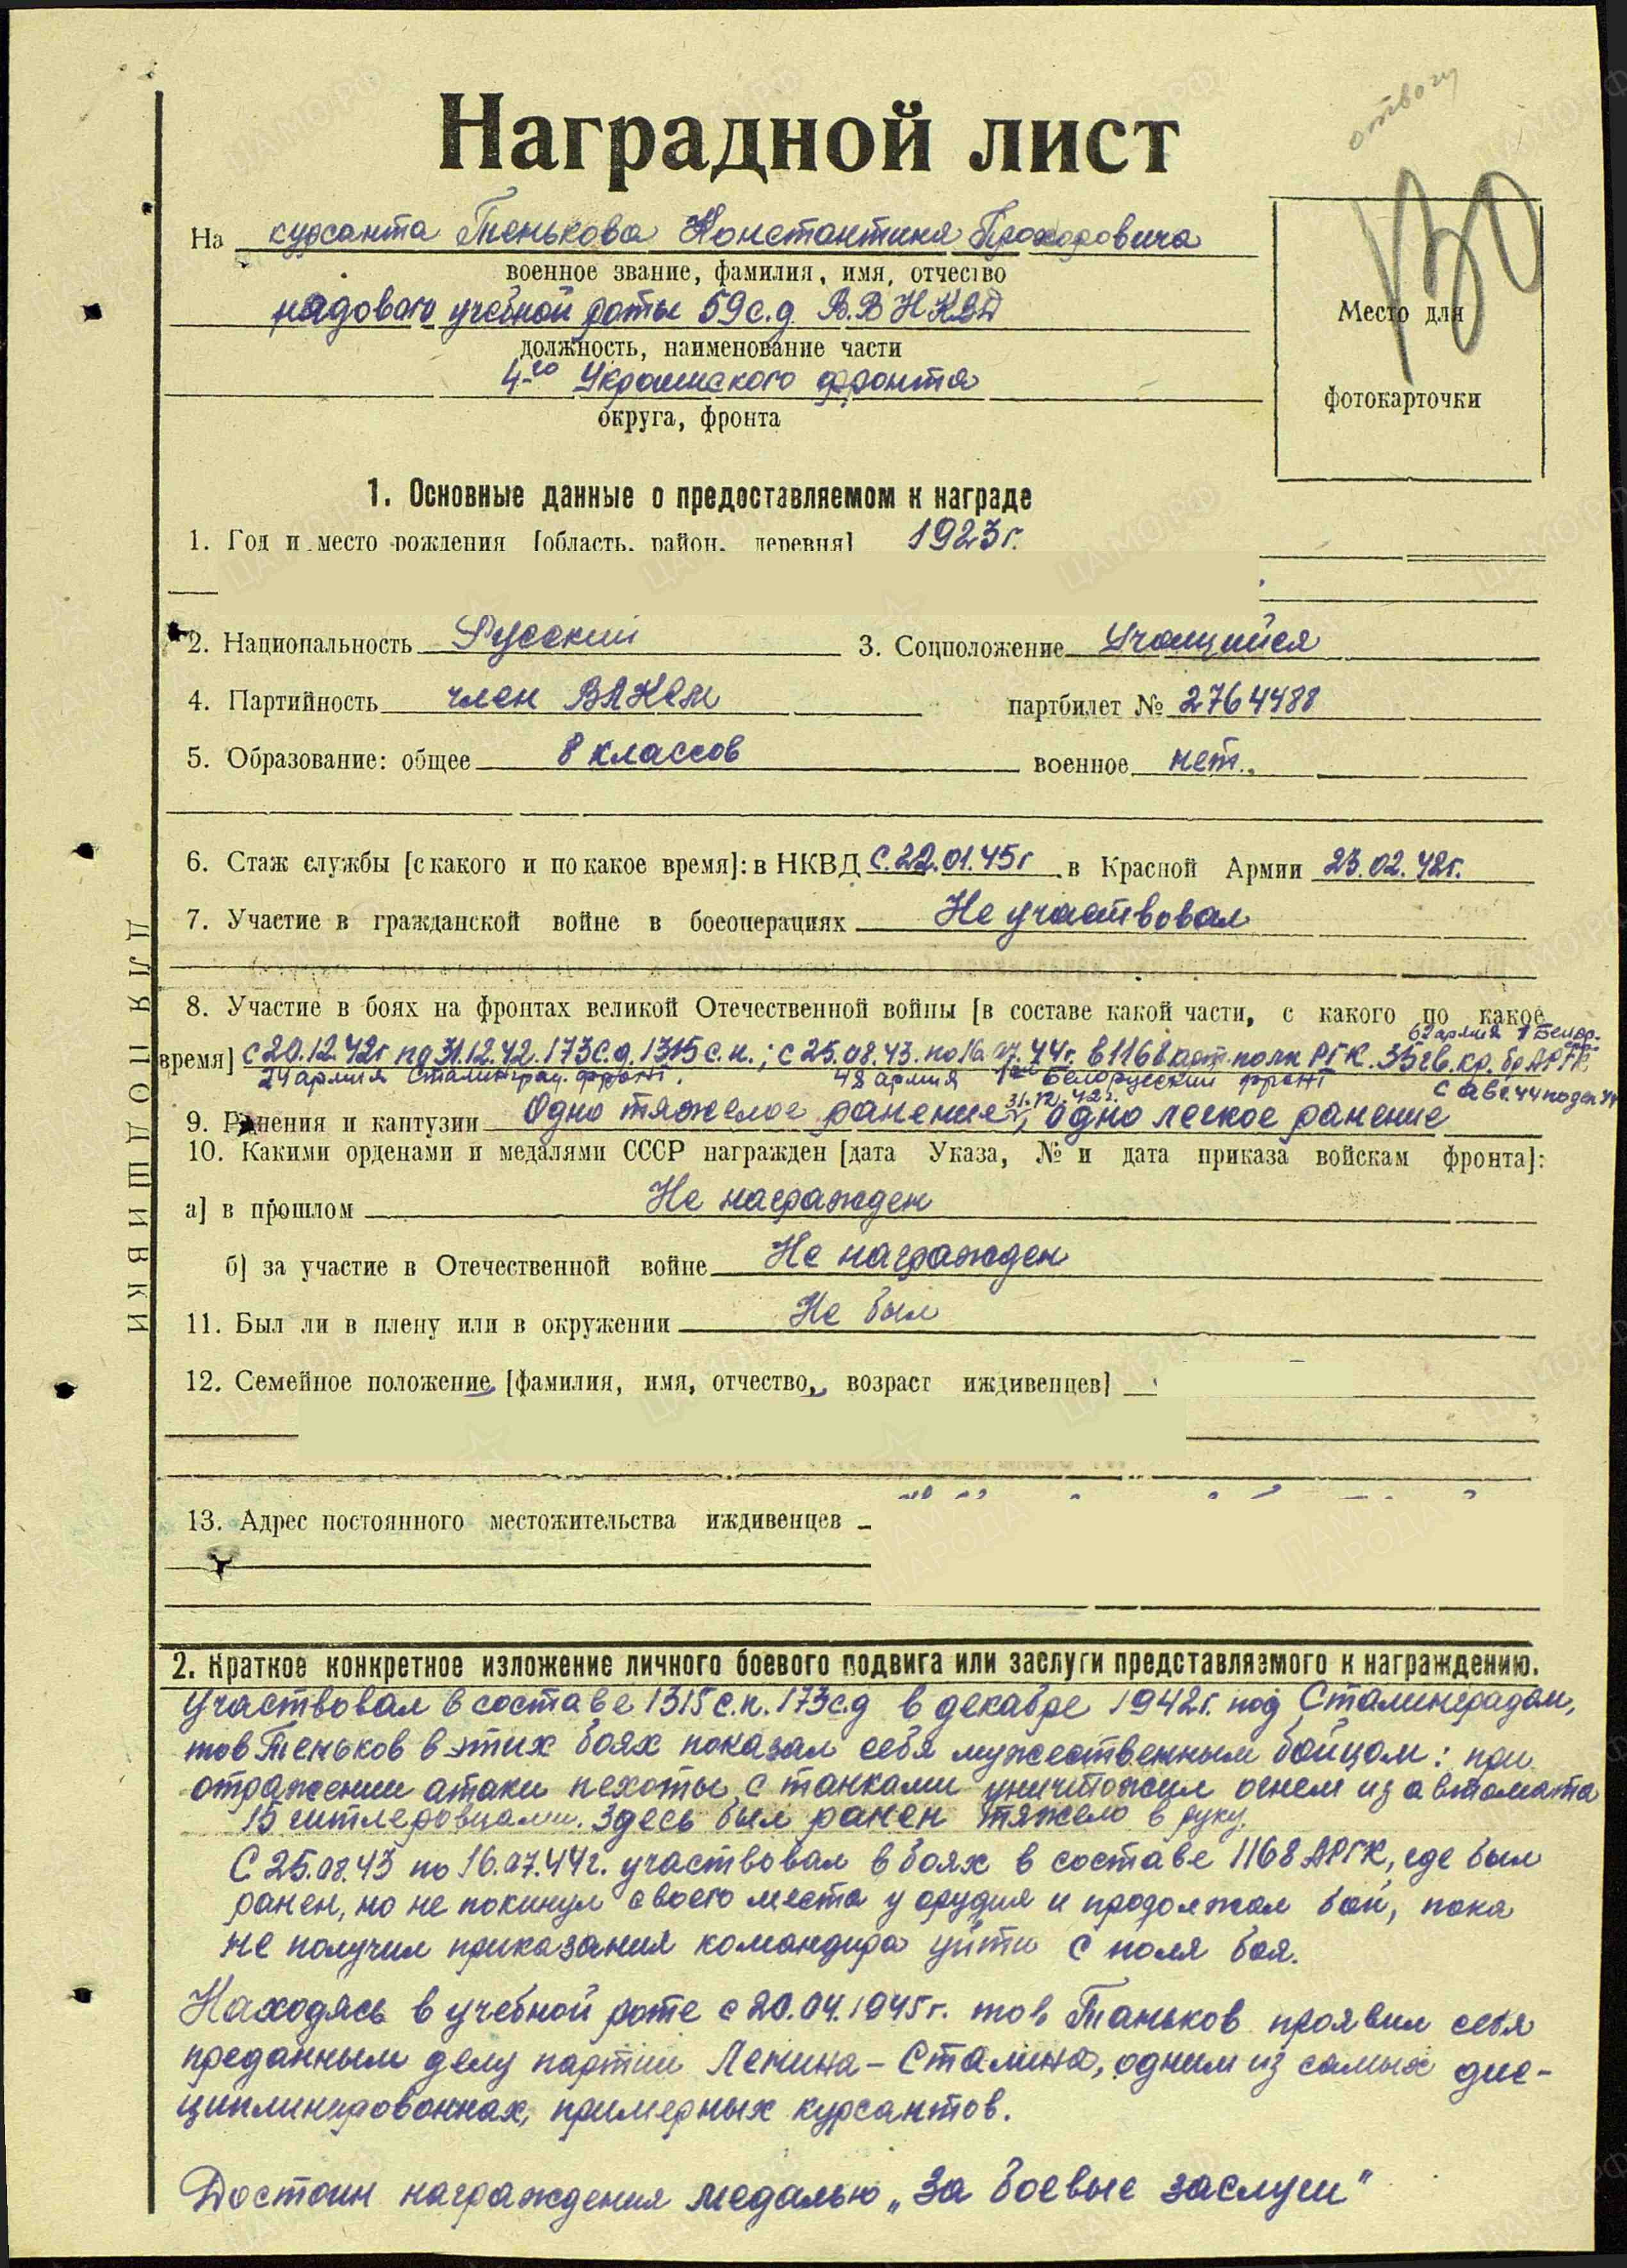 отвагу
Наградной лист
130
На курсанта Тенькова Константина Прохоровича
военное звание, фамилия, имя, отчество
рядового учебной роты 59 с.д. В.В НКВД
должность, наименование части
4-го Украинского фронта
округа, фронта
Место для
фотокарточки
1. Основные данные о предоставляемом к награде
1. Год и место рождения [область, район, деревня] 1923г.
2. Национальность Русский 3. Соцположение Учащийся
4. Партийность член ВЛКСМ партбилет № 2764488
5. Образование: общее 8 классов военное нет.
6. Стаж службы [с какого и по какое время]: в НКВД С.22.01.45г в Красной Армии 23.02.42г.
7. Участие в гражданской войне в боеоперациях Не участвовал
8. Участие в боях на фронтах великой Отечественной войны [в составе какой части, с какого по какое
61 армия 1 Белор.
время] С 20.12.42г по 31.12.42. 173 с.д. 1315 с.п.; с 25.08.43. по 16.07.44г. в 1168 арт. полк РГК. 35 гв.
24 армия Сталинград. фронт. 48 армия 1ый Белорусский фронт
31.12.42г.
9. Ранения и кантузии Одно тяжелое ранение, одно легкое ранение
10. Какими орденами и медалями СССР награжден [дата Указа, № и дата приказа войскам фронта]:
а] в прошлом Не награжден
б] за участие в Отечественной войне Не награжден
11. Был ли в плену или в окружении Не был
12. Семейное положение [фамилия, имя, отчество, возраст иждивенцев]
13. Адрес постоянного местожительства иждивенцев
ДЛЯ ПОДШИВКИ
2. Краткое конкретное изложение личного боевого подвига или заслуги представляемого к награждению.
Участвовал в составе 1315 с.п. 173 с.д в декабре 1942г. под Сталинградом,
тов Теньков в этих боях показал себя мужественным бойцом: при
отражении атаки пехоты с танками уничтожил огнем из автомата
15 гитлеровцами. Здесь был ранен тяжело в руку.
С 25.08.43 по 16.07.44г. участвовал в боях в составе 1168 АРГК, где был
ранен, но не покинул своего места у орудия и продолжал бой, пока
не получил приказания командира уйти с поля боя.
Находясь в учебной роте с 20.04.1945г. тов Таньков проявил себя
преданным делу партии Ленина-Сталина, одним из самых дис-
циплинированнах, примерных курсантов.
Достоин награждения медалью „За боевые заслуги"